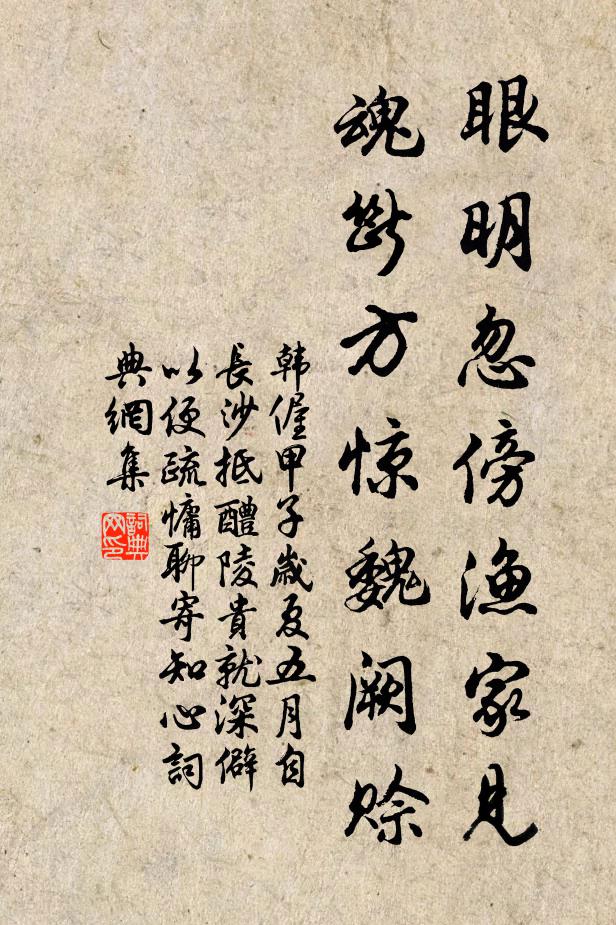 眼明忽傍渔家见
魂断方惊魏阙赊
韩偓甲子岁夏五月自
長沙抵醴陵貴就深僻
以便疏慵聊寄知心詞
典網集
詞典
网印